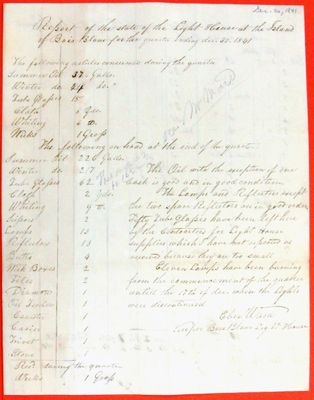 Dec. 31, 1841
Report of the state of the Light House at the Island
of Bois Blanc for the quarter ending Dec 31. 1841
The following articles consumed during the quarter
Summer Oil 37 Galls.
Winter do 24 do
Tube Glasses 15
Cloth 2 Yds
Whiting 4 lb
Wicks 1 Gross
The following on hand at the end of the quarter
Summer Oil 220 Galls
Winter do 27
Tube Glasses 62
Cloth 2 Yds
Whiting 9 lb
Scissors 2
Lamps 13
Reflectors 13
Butts 4
Wick Boxes 2
Files 2
Diamond 1
1
Canister 1
1
Trivet 1
Stove 1
Recd during the quarter
Wicks 1 Gross
The Oil with the exception of one
Cask is good and in good condition
The Lamps and Reflectors except
the two spare Reflectors are in good order
Fifty Tube Glasses have been left here
by the Contractors for Light House
supplies which I have not receipted as
received because they are too small
Eleven Lamps have been burning
from the commencement of the quarter
untill the of Dec when the Lights
were discontinued
Eber Ward
Keeper Bois Blanc Light House